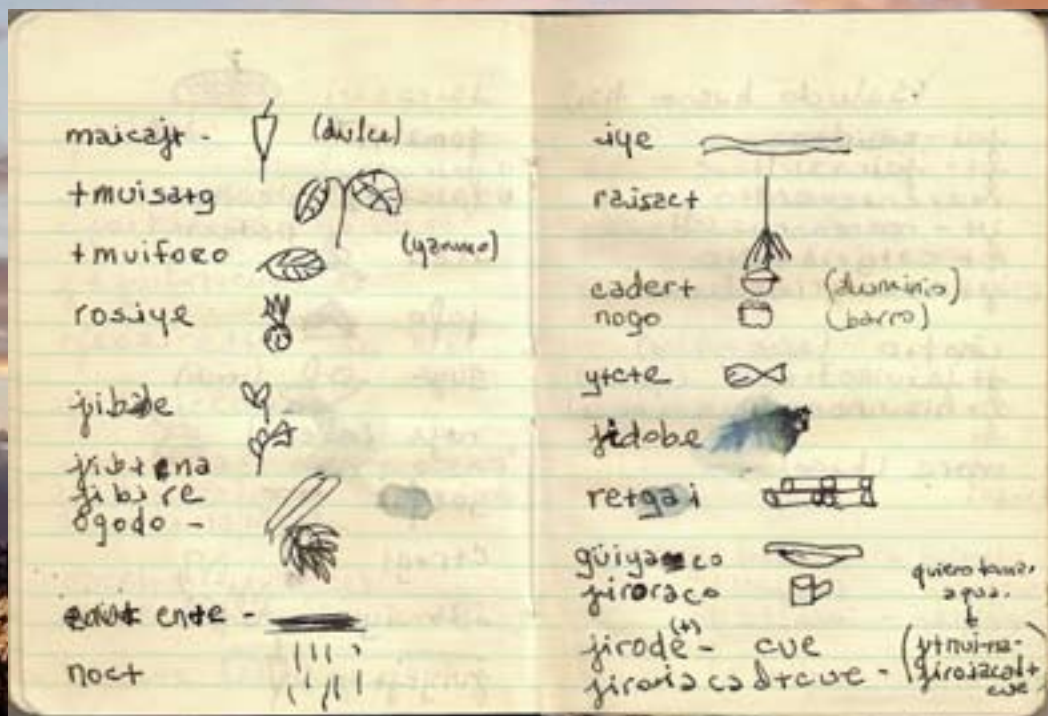 maicajt - (dulce)
+muisatg
+muifoco (yarumo)
rosiye
jibie
jibiena
jibire
ogodo -
ente -
noc+
iye
raisac+
cader+ (aluminio)
nogo (barro)
y+c+e
jidobe
re+gai
güiyaco
jiroraco
quiero tomar
agua.
jirode(+) - cue
jiroiacad+cue - (j+nui-na-
jiroiacad+
cue)